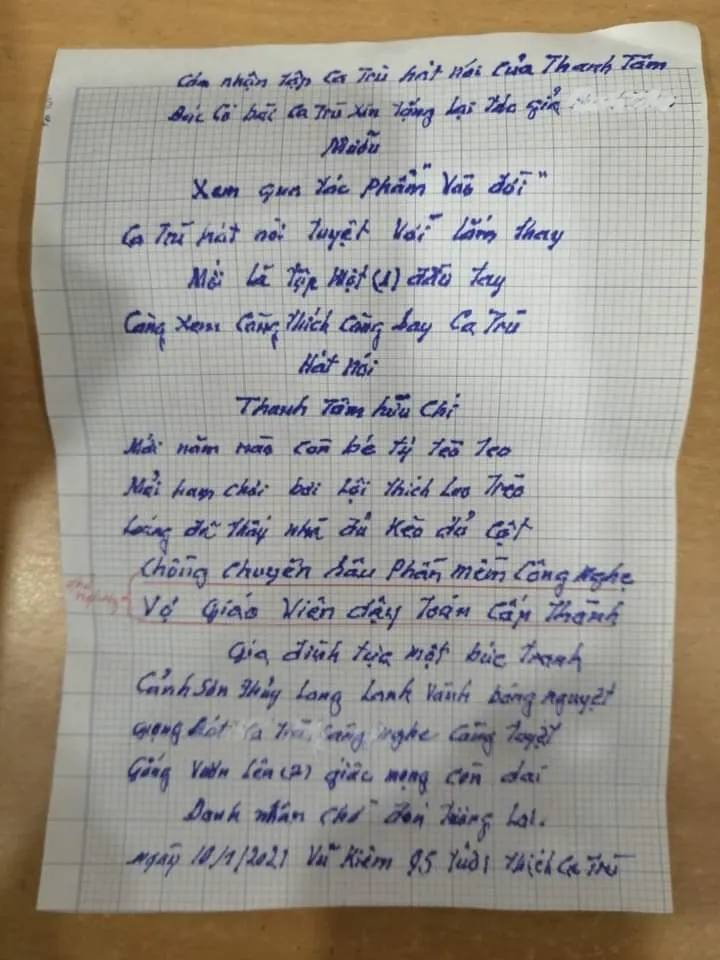 Cảm nhận tập Ca Trù hát nói Của Thanh Tâm
Bác Có bài Ca Trù xin tặng lại tác giả
Mưỡu
Xem qua tác phẩm "Vào đời"
Ca Trù hát nói tuyệt Vời lắm thay
Mới là tập Một (1) đầu tay
Càng xem Càng thích Càng say Ca Trù
Hát nói
Thanh Tâm hữu Chí
Mới năm nào còn bé tý tèo teo
Mải ham chơi bơi lội thích leo Trèo
thấy nhà đủ Kèo đủ Cột
Chồng Chuyên Sâu Phần mềm Công Nghệ
Vợ Giáo Viên dậy Toán Cấp Thành
Gia đình tựa một bức Tranh
Cảnh Sơn Thủy Long Lanh Vành bóng nguyệt
Giọng hát Ca Trù Càng Nghe Càng tuyệt
Gắng Vươn Lên (2) giấc mộng còn dài
Danh nhân chờ đón tương Lai.
ngày 10/1/2021 Vũ Kiêm 95 tuổi thích Ca Trù